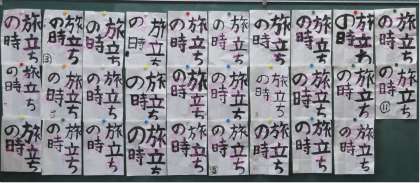 旅立ち
の時
旅立ち
の時
旅立ち
の時
旅立ち
の時
旅立ち
の時
旅立ち
の時
旅立ち
の時
旅立ち
の時
旅立ち
の時
旅立ち
の時
旅立ち
の時
⑪
旅立ち
の時
旅立ち
の時
旅立ち
の時
旅立ち
の時
旅立ち
の時
旅立ち
の時
旅立ち
の時
旅立ち
の時
旅立ち
の時
旅立ち
の時
旅立ち
の時
旅立ち
の時
旅立ち
の時
旅立ち
の時
旅立ち
の時
旅立ち
の時
旅立ち
の時
旅立ち
の時